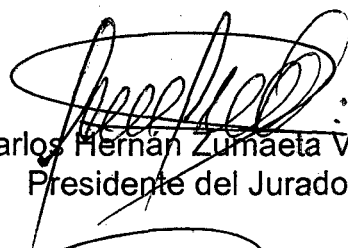 arlos Hernán Zumaeta V
Presidente del Jurado